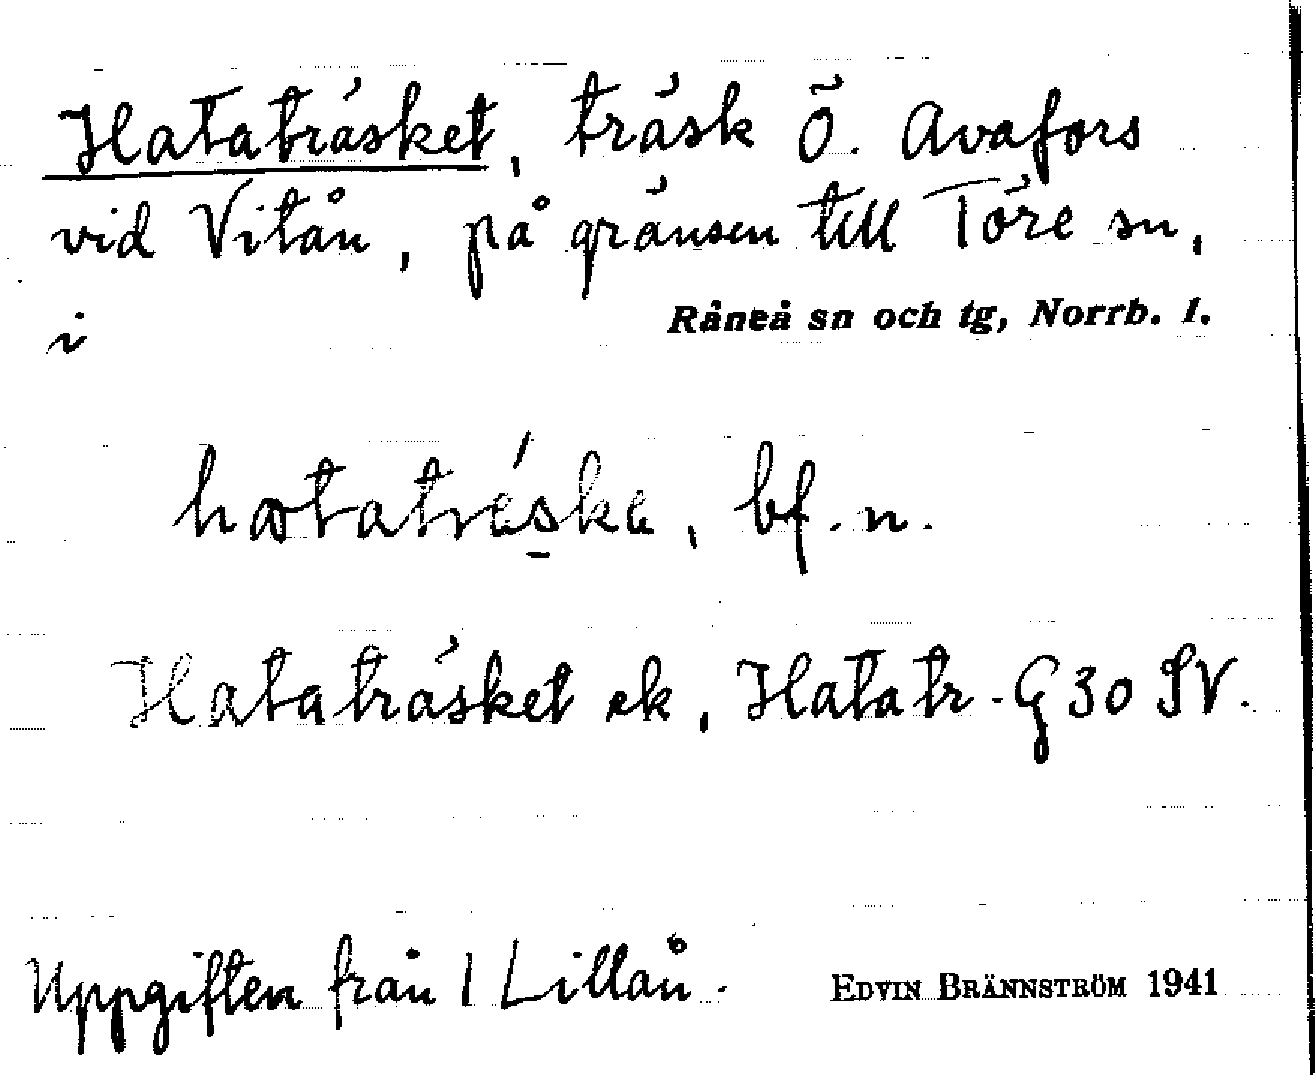 Hataträsket, träsk Ö. Avafors
vid Vitån, på gränsen till Töre sn,
i Råneå sn och tg, Norrb. l.
hataträska, bf. n.
Hataträsket ek, Hatatr. G 30 SV.
Uppgiften från 1 Lillån.
EDVIN BRÄNNSTRÖM 1941